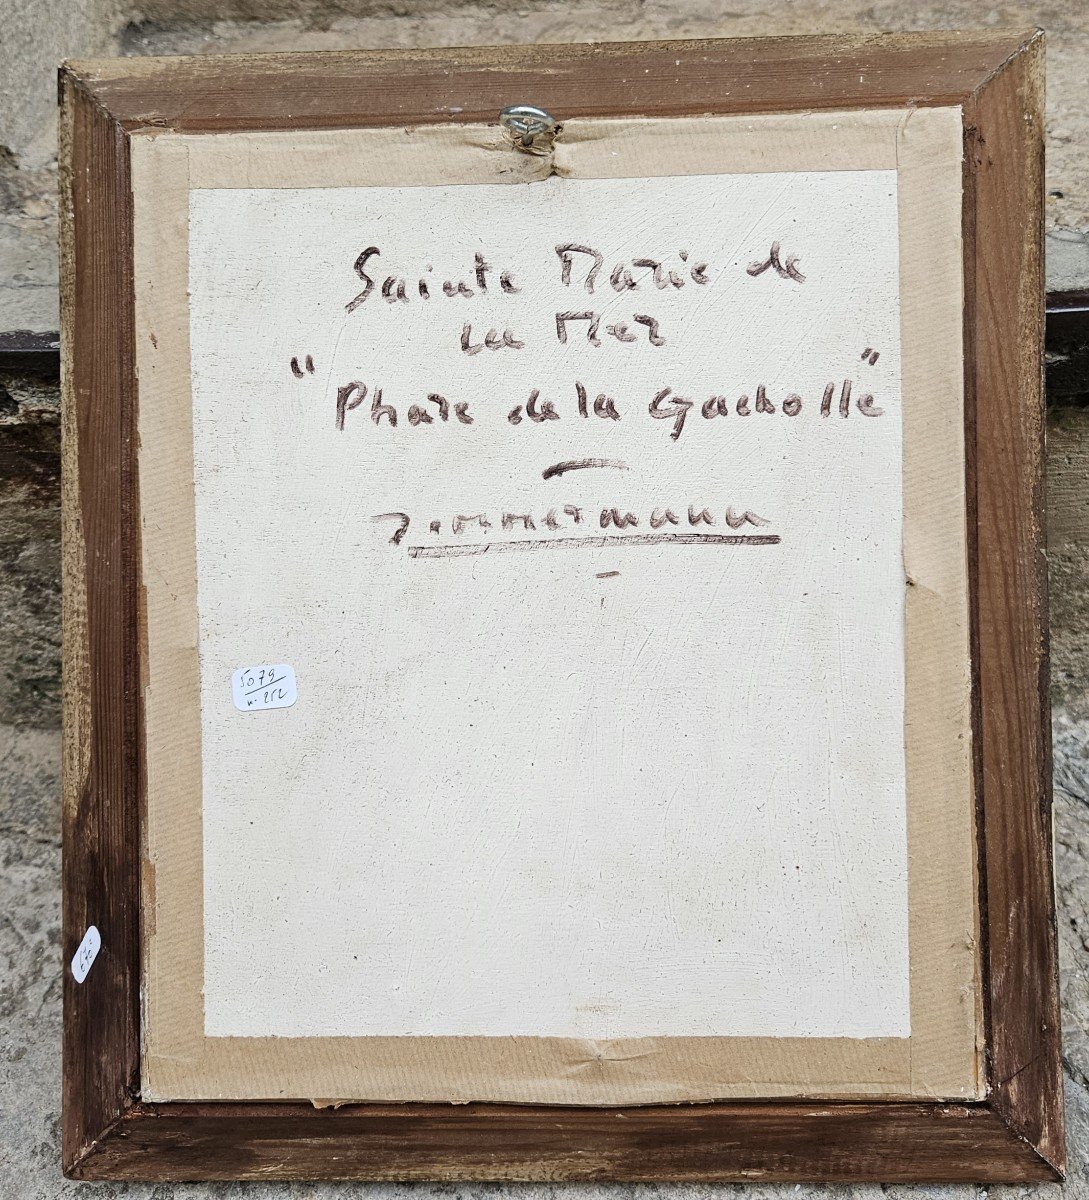 Sainte Marie de
La Mer
"Phare de la Gacholle"
Zimmermann
5079
n. 252